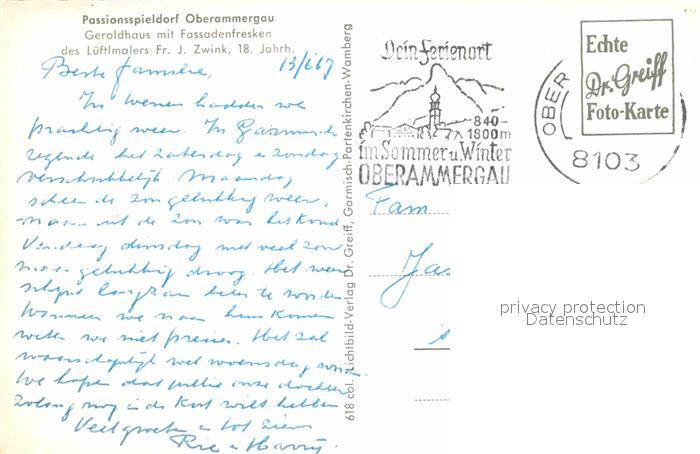 Passionsspieldorf Oberammergau
Geroldhaus mit Fassadenfresken
des Lüftlmalers Fr. J. Zwink, 18. Jahrh.
Beste familie, 13/6 67
In Wenen hadden we
prachtig weer. In Garmisch
regende het zaterdag en zondag
verschrikkelijk Maandag
scheen de zon gelukkig weer,
maar uit de zon was het koud
Vandaag dinsdag niet veel zon
maar gelukkig droog. Het weer
schijnt langzaam beter te worden
Wanneer we naar huis komen
weten we niet precies. Het zal
waarschijnlijk wel woensdag worden
We hopen dat jullie onze dochter
zolang nog in de kost wilt hebben
Veel groeten en tot ziens
Rie en Harry.
618 col. Lichtbild-Verlag Dr. Greiff, Garmisch-Partenkirchen-Wamberg
Dein Ferienort
840-
1800m
im Sommer u. Winter
OBERAMMERGAU
OBER
8103
Echte
Dr. Greiff
Foto-Karte
Fam
Jas
privacy protection
Datenschutz